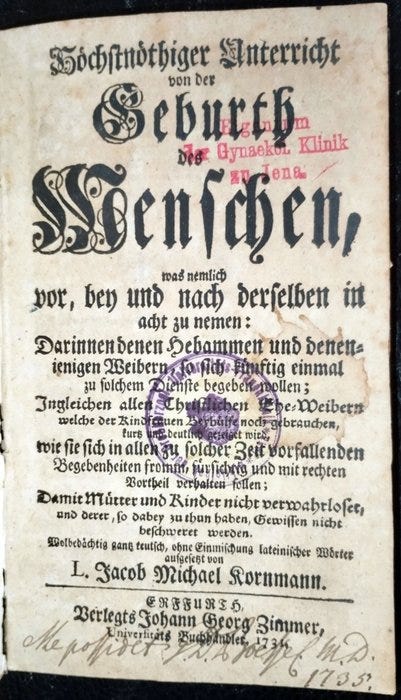 Höchstnöthiger Unterricht
von der
Geburth
des
Menschen,
Eigentum
der Gynaekol. Klinik
zu Jena.
was nemlich
vor, bey und nach derselben in
acht zu nemen:
Darinnen denen Hebammen und denen-
jenigen Weibern, so sich künftig einmal
zu solchem Dienste begeben wollen;
Ingleichen allen Christlichen Ehe-Weibern
welche der Kindfrauen Beyhülfe noch gebrauchen,
kurtz deutlich gezeiget wird,
wie sie sich in allen zu solcher Zeit vorfallenden
Begebenheiten fromm, fürsichtig und mit rechten
Vortheil verhalten sollen;
Damit Mütter und Kinder nicht verwahrloset,
und derer, so dabey zu thun haben, Gewissen nicht
beschweret werden.
Wolbedächtig gantz teutsch, ohne Einmischung lateinischer Wörter
aufgesetzt von
L. Jacob Michael Kornmann.
ERFFURTH,
Verlegts Johann Georg Zimmer,
Univerſitäts Buchhändler,
Me possidet M.D.
1735